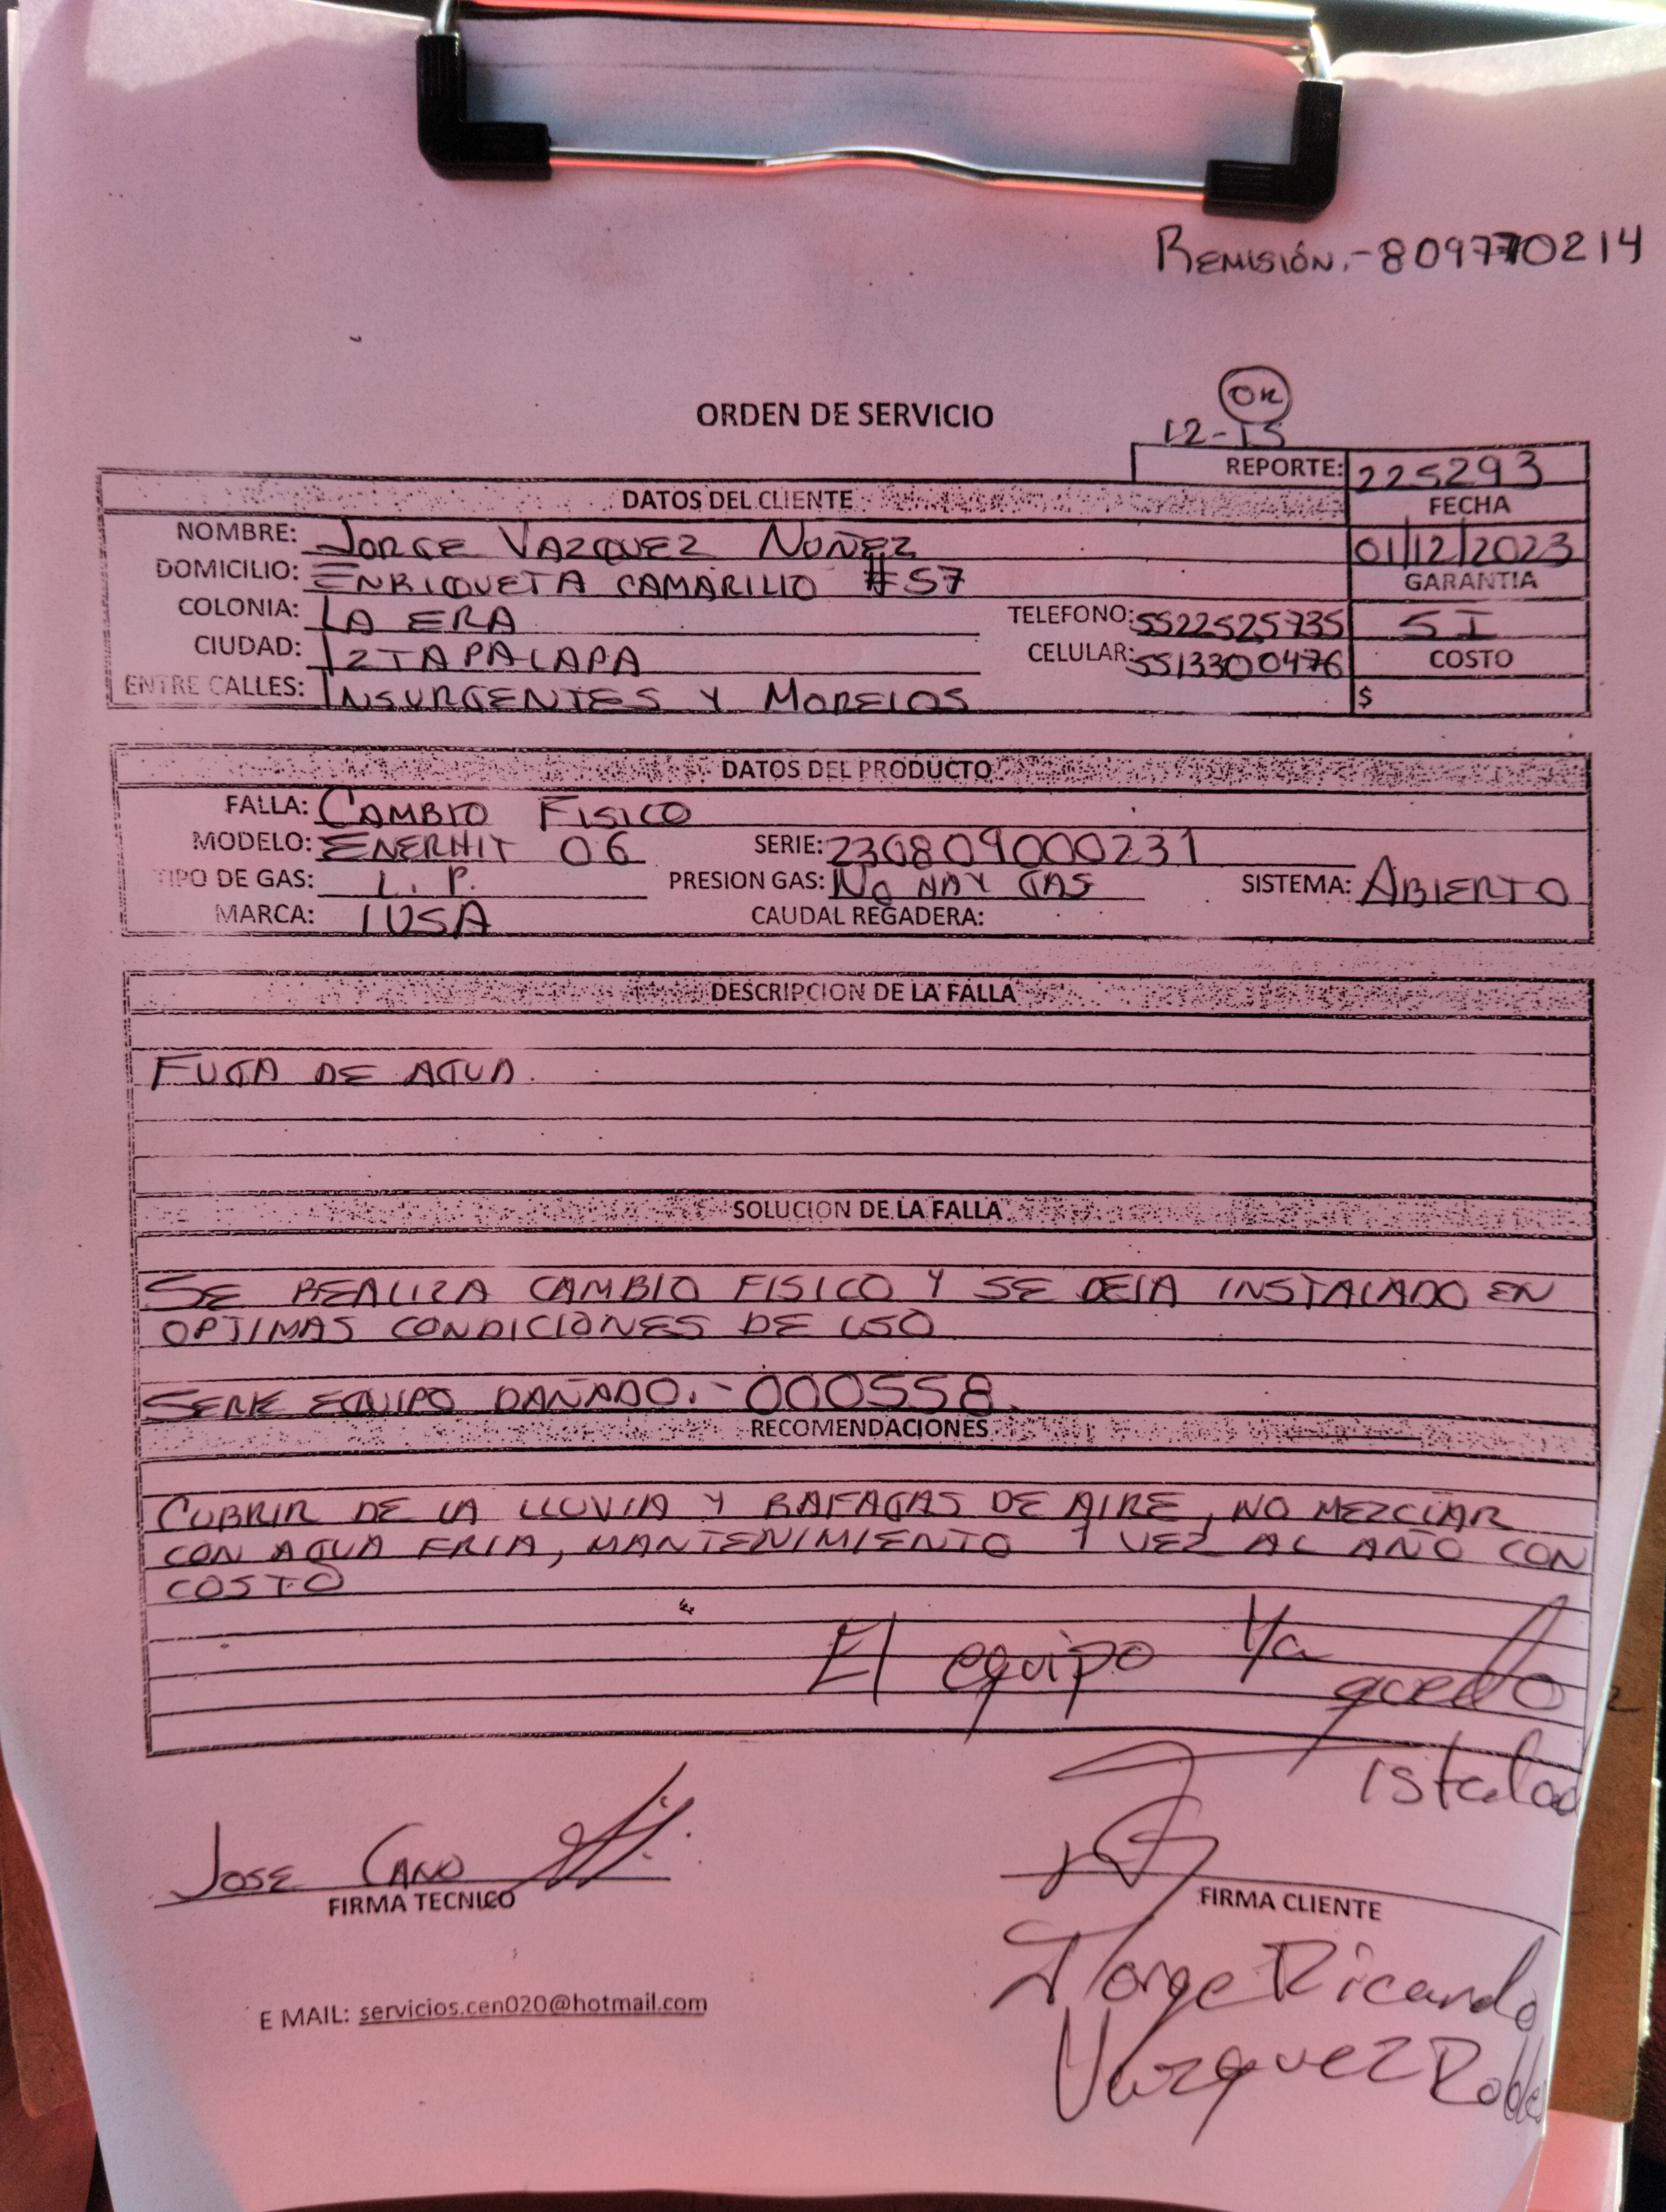 REMISIÓN.-809770214
OK
ORDEN DE SERVICIO
12-15
REPORTE: 225293
DATOS DEL CLIENTE
FECHA
NOMBRE: JORGE VAZQUEZ NUÑEZ
01/12/2023
DOMICILIO: ENRIQUETA CAMARILLO #57
GARANTIA
COLONIA: LA ERA TELEFONO: 5522525735 SI
CIUDAD: IZTAPALAPA CELULAR: 5513300476 COSTO
ENTRE CALLES: INSURGENTES Y MORELOS $
DATOS DEL PRODUCTO
FALLA: CAMBIO FISICO
MODELO: ENERHIT 06 SERIE: 230809000231
TIPO DE GAS: L.P. PRESION GAS: NO HAY GAS SISTEMA: ABIERTO
MARCA: IUSA CAUDAL REGADERA:
DESCRIPCION DE LA FALLA
FUGA DE AGUA.
SOLUCION DE LA FALLA
SE REALIZA CAMBIO FISICO Y SE DEJA INSTALADO EN
OPTIMAS CONDICIONES DE USO
SERIE EQUIPO DAÑADO.-000558.
RECOMENDACIONES
CUBRIR DE LA LLUVIA Y RAFAGAS DE AIRE, NO MEZCLAR
CON AGUA FRIA, MANTENIMIENTO 1 VEZ AL AÑO CON
COSTO
El equipo Ya quedo
istalado
JOSE CANO
FIRMA TECNICO
FIRMA CLIENTE
Jorge Ricardo
Vazquez Robles
E MAIL: servicios.cen020@hotmail.com